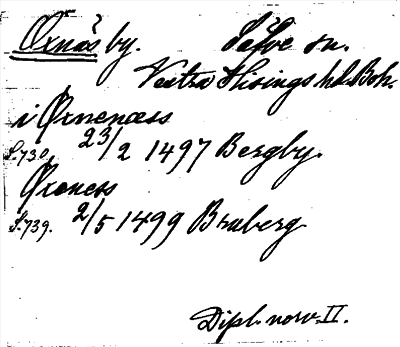 Oxnäs by. Säfve sn.
Västra Hisings hd. Boh.
i Øxnenæss
S. 730. 23/2 1497 Bergby.
Øxeness
S. 739. 2/5 1499 Braberg
Dipl. norv. II.